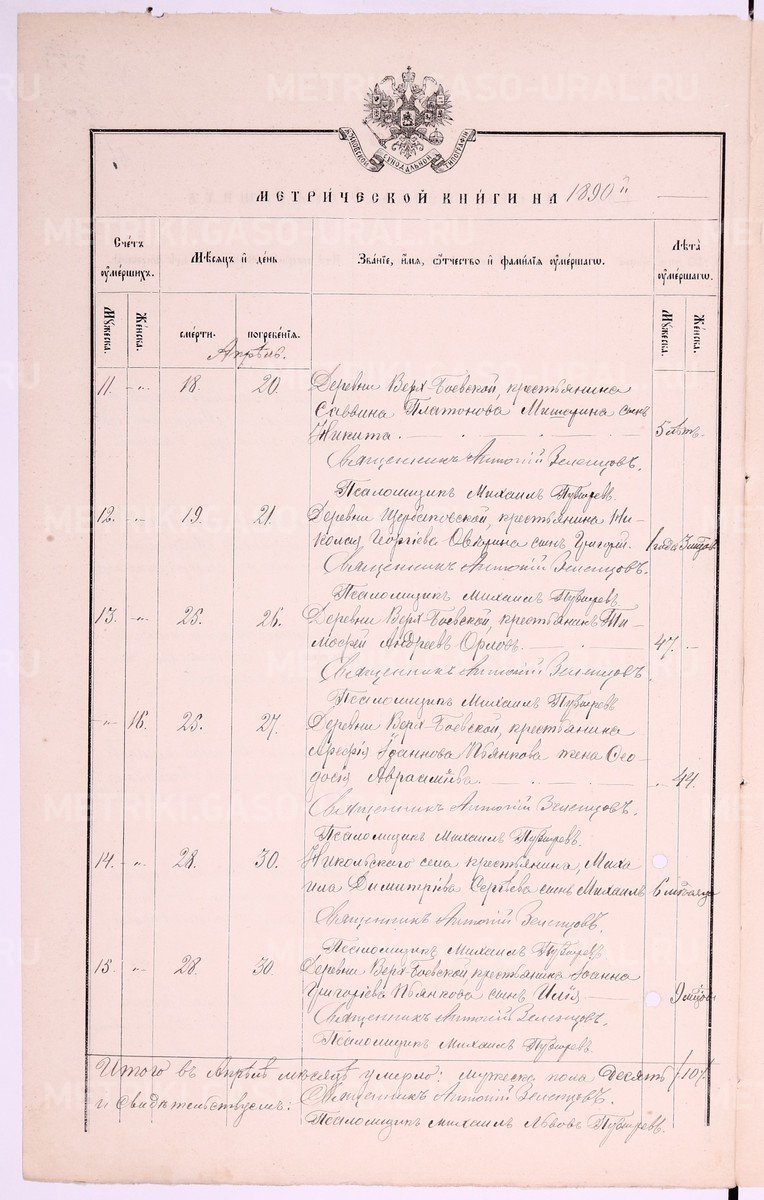 METRIKI.GASO-URAL.RU
МЕТРИ́ЧЕСКОЙ КНИ́ГИ НА 1890й
Сче́тъ ᲂу҆ме́ршихъ.
Мѣ́сяцъ и҆ де́нь
Зва́нїе, и҆́мя, ѻ҆́тчество и҆ фами́лїя ᲂу҆ме́ршагѡ.
Лѣ́та ᲂу҆ме́ршагѡ.
Мꙋ́жеска.
Же́нска.
сме́рти.
погребе́нїя.
Мꙋ́жеска.
Же́нска.
Апрѣль.
11. - „. 18. 20. Деревни Верх-Боевской, крестьянина
Саввина Платонова Мишарина сынъ
Никита. 5 лѣтъ.
Священникъ Антоній Зеленцовъ.
Псаломщик Михаилъ
12. - „. 19. 21. Деревни Щербаковской, крестьянина Ни-
колая Георгіева Овчрина сынъ Григорій. 1 года 3 мѣсяц.
Священникъ Антоній Зеленцовъ.
Псаломщик Михаилъ
13. - „. 25. 26. Деревни Верх-Боевской, крестьянинъ Ти-
мофей Андреевъ Орловъ. 47. -
Священникъ Антоній Зеленцовъ.
Псаломщик Михаилъ
„ 16. 25. 27. Деревни Верх-Боевской, крестьянина
Арефія Іоаннова Пьянкова жена Ѳео-
досія Авраамиева. „ 44.
Священникъ Антоній Зеленцовъ.
Псаломщик Михаилъ
14. „. 28. 30. Никольскаго села крестьянина, Миха
ила Димитріева Сергѣева сынъ Михаилъ 6 мѣсяца
Священникъ Антоній Зеленцовъ.
Псаломщикъ Михаилъ
15. „. 28. 30. Деревни Верх-Боевской крестьянина Іоанна
Григоріева Пьянкова сынъ Илія 9 мѣсяц
Священникъ Антоній Зеленцовъ.
Псаломщикъ Михаилъ
Итого въ Апрѣлѣ мѣсяцѣ умерло: мужеска пола десять /10/
и Свидѣтельствуемъ: Священникъ Антоній Зеленцовъ.
Псаломщикъ Михаилъ Львовъ